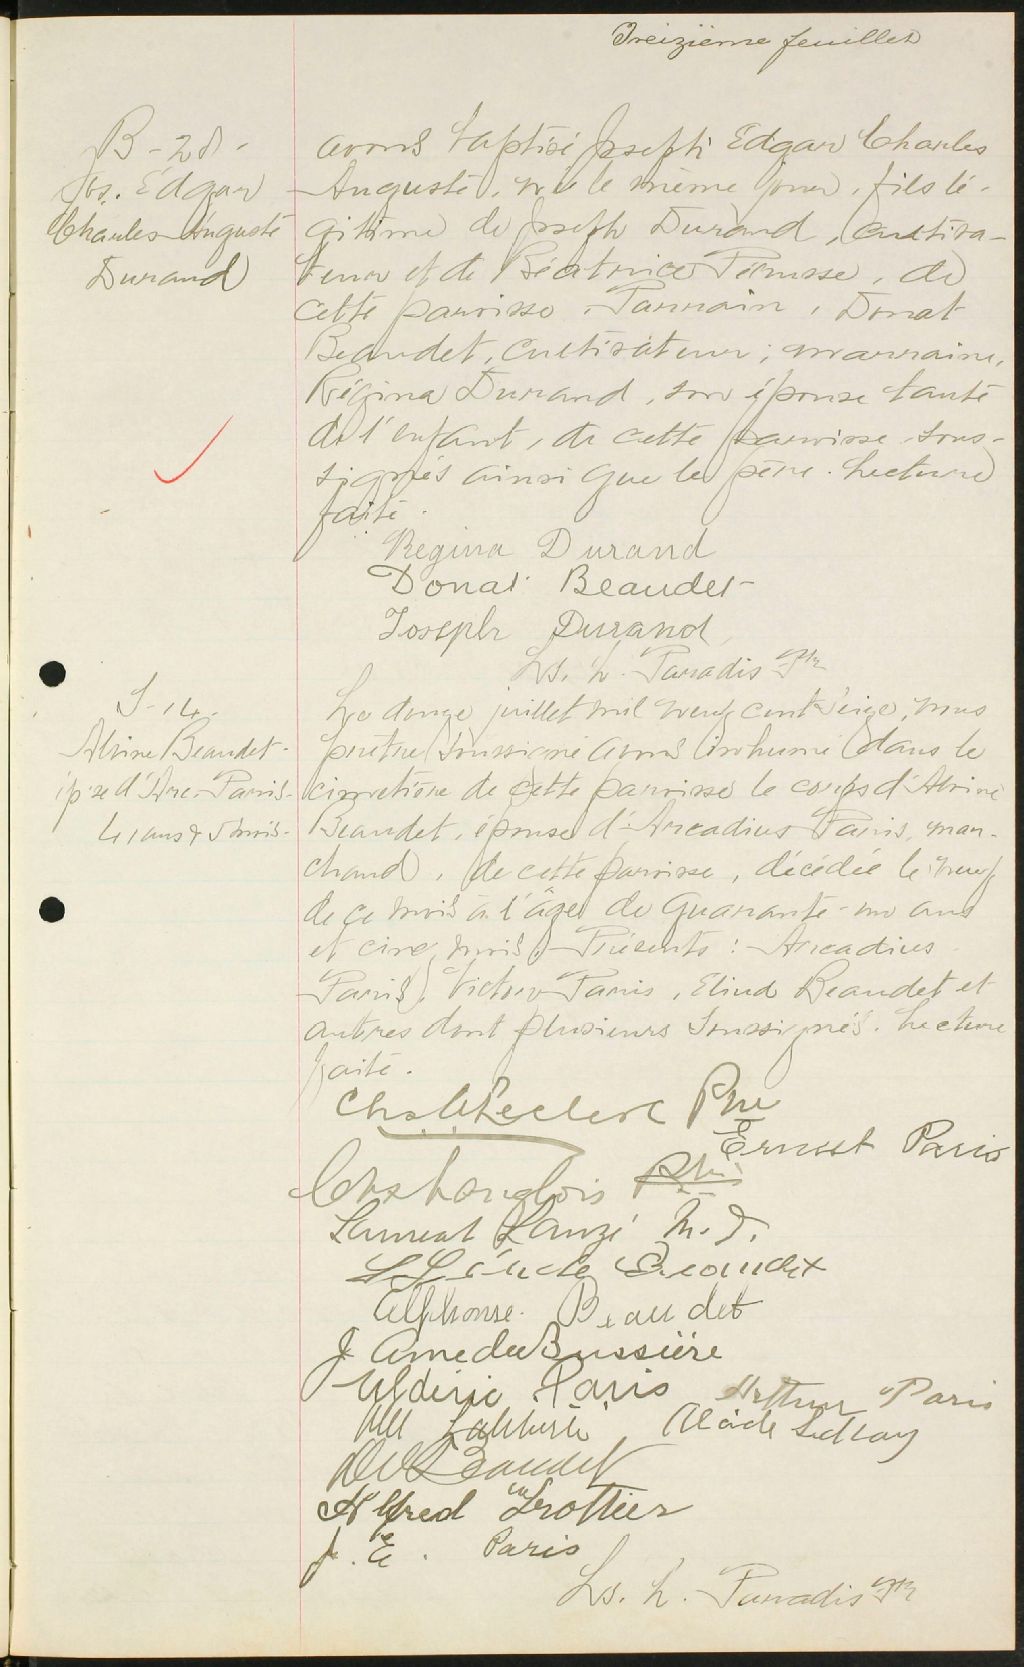 Treizième feuillet
B-28-
Jos. Edgar
Charles Auguste
Durand
avons baptisé Joseph Edgar Charles
Auguste, né le même jour, fils lé-
gitime de Joseph Durand, cultiva-
teur et de Béatrice Pérusse, de
cette paroisse. Parrain, Donat
Beaudet, cultivateur; marraine,
Régina Durand, son épouse tante
de l'enfant, de cette paroisse sous-
signés ainsi que le père. Lecture
faite.
Regina Durand
Donat Beaudet
Joseph Durand
Ls. L. Paradis Ptr
S-14.
Alvine Beaudet
ép'se d'Arc. Paris.
41 ans & 5 mois-
Le douze juillet mil neuf cent seize, nous
prêtre soussigné avons inhumé dans le
cimetière de cette paroisse le corps d'Alvine
Beaudet, épouse d'Arcadius Paris, mar-
chand, de cette paroisse, décédée le neuf
de ce mois à l'âge de quarante-un ans
et cinq mois. Présents: Arcadius
Paris, Victor Paris, Eliud Beaudet et
autres dont plusieurs soussignés. Lecture
faite.
Chs Leclerc Ptre
Ernest Paris
Chs Langlois Ptr
Laurent M.D.
Beaudet
Alphonse Beaudet
J Amedee Bussière
Ulderic Paris Arthur Paris
Alcide
Beaudet
Alfred Trottier
J. E. Paris
Ls. L. Paradis Ptr